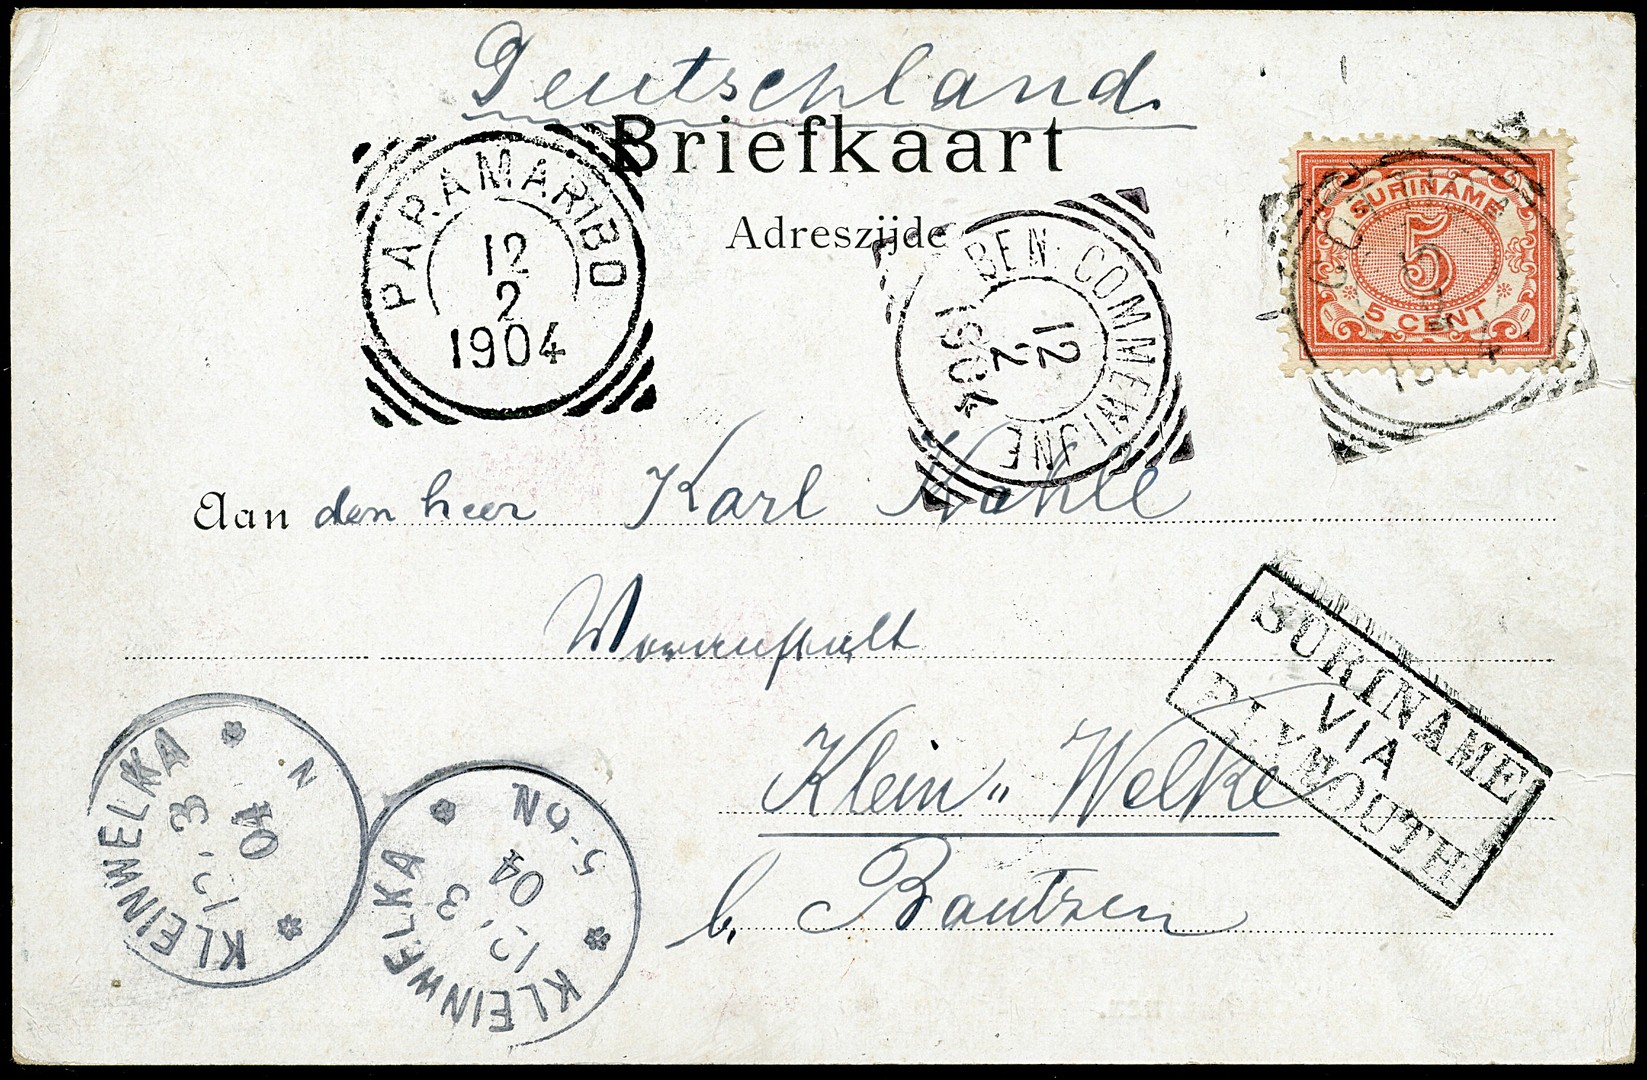 Deutschland.
Briefkaart
Adreszijde
PARAMARIBO
12
2
1904
BEN. COMMEWIJNE
12
2
1904
SURINAME
5
5 CENT
Aan den heer Karl
Klein" Welke
b. Bautzen
SURINAME
VIA
PLYMOUTH
KLEINWELKA
3
04
N
KLEINWELKA
3
04
5-6N